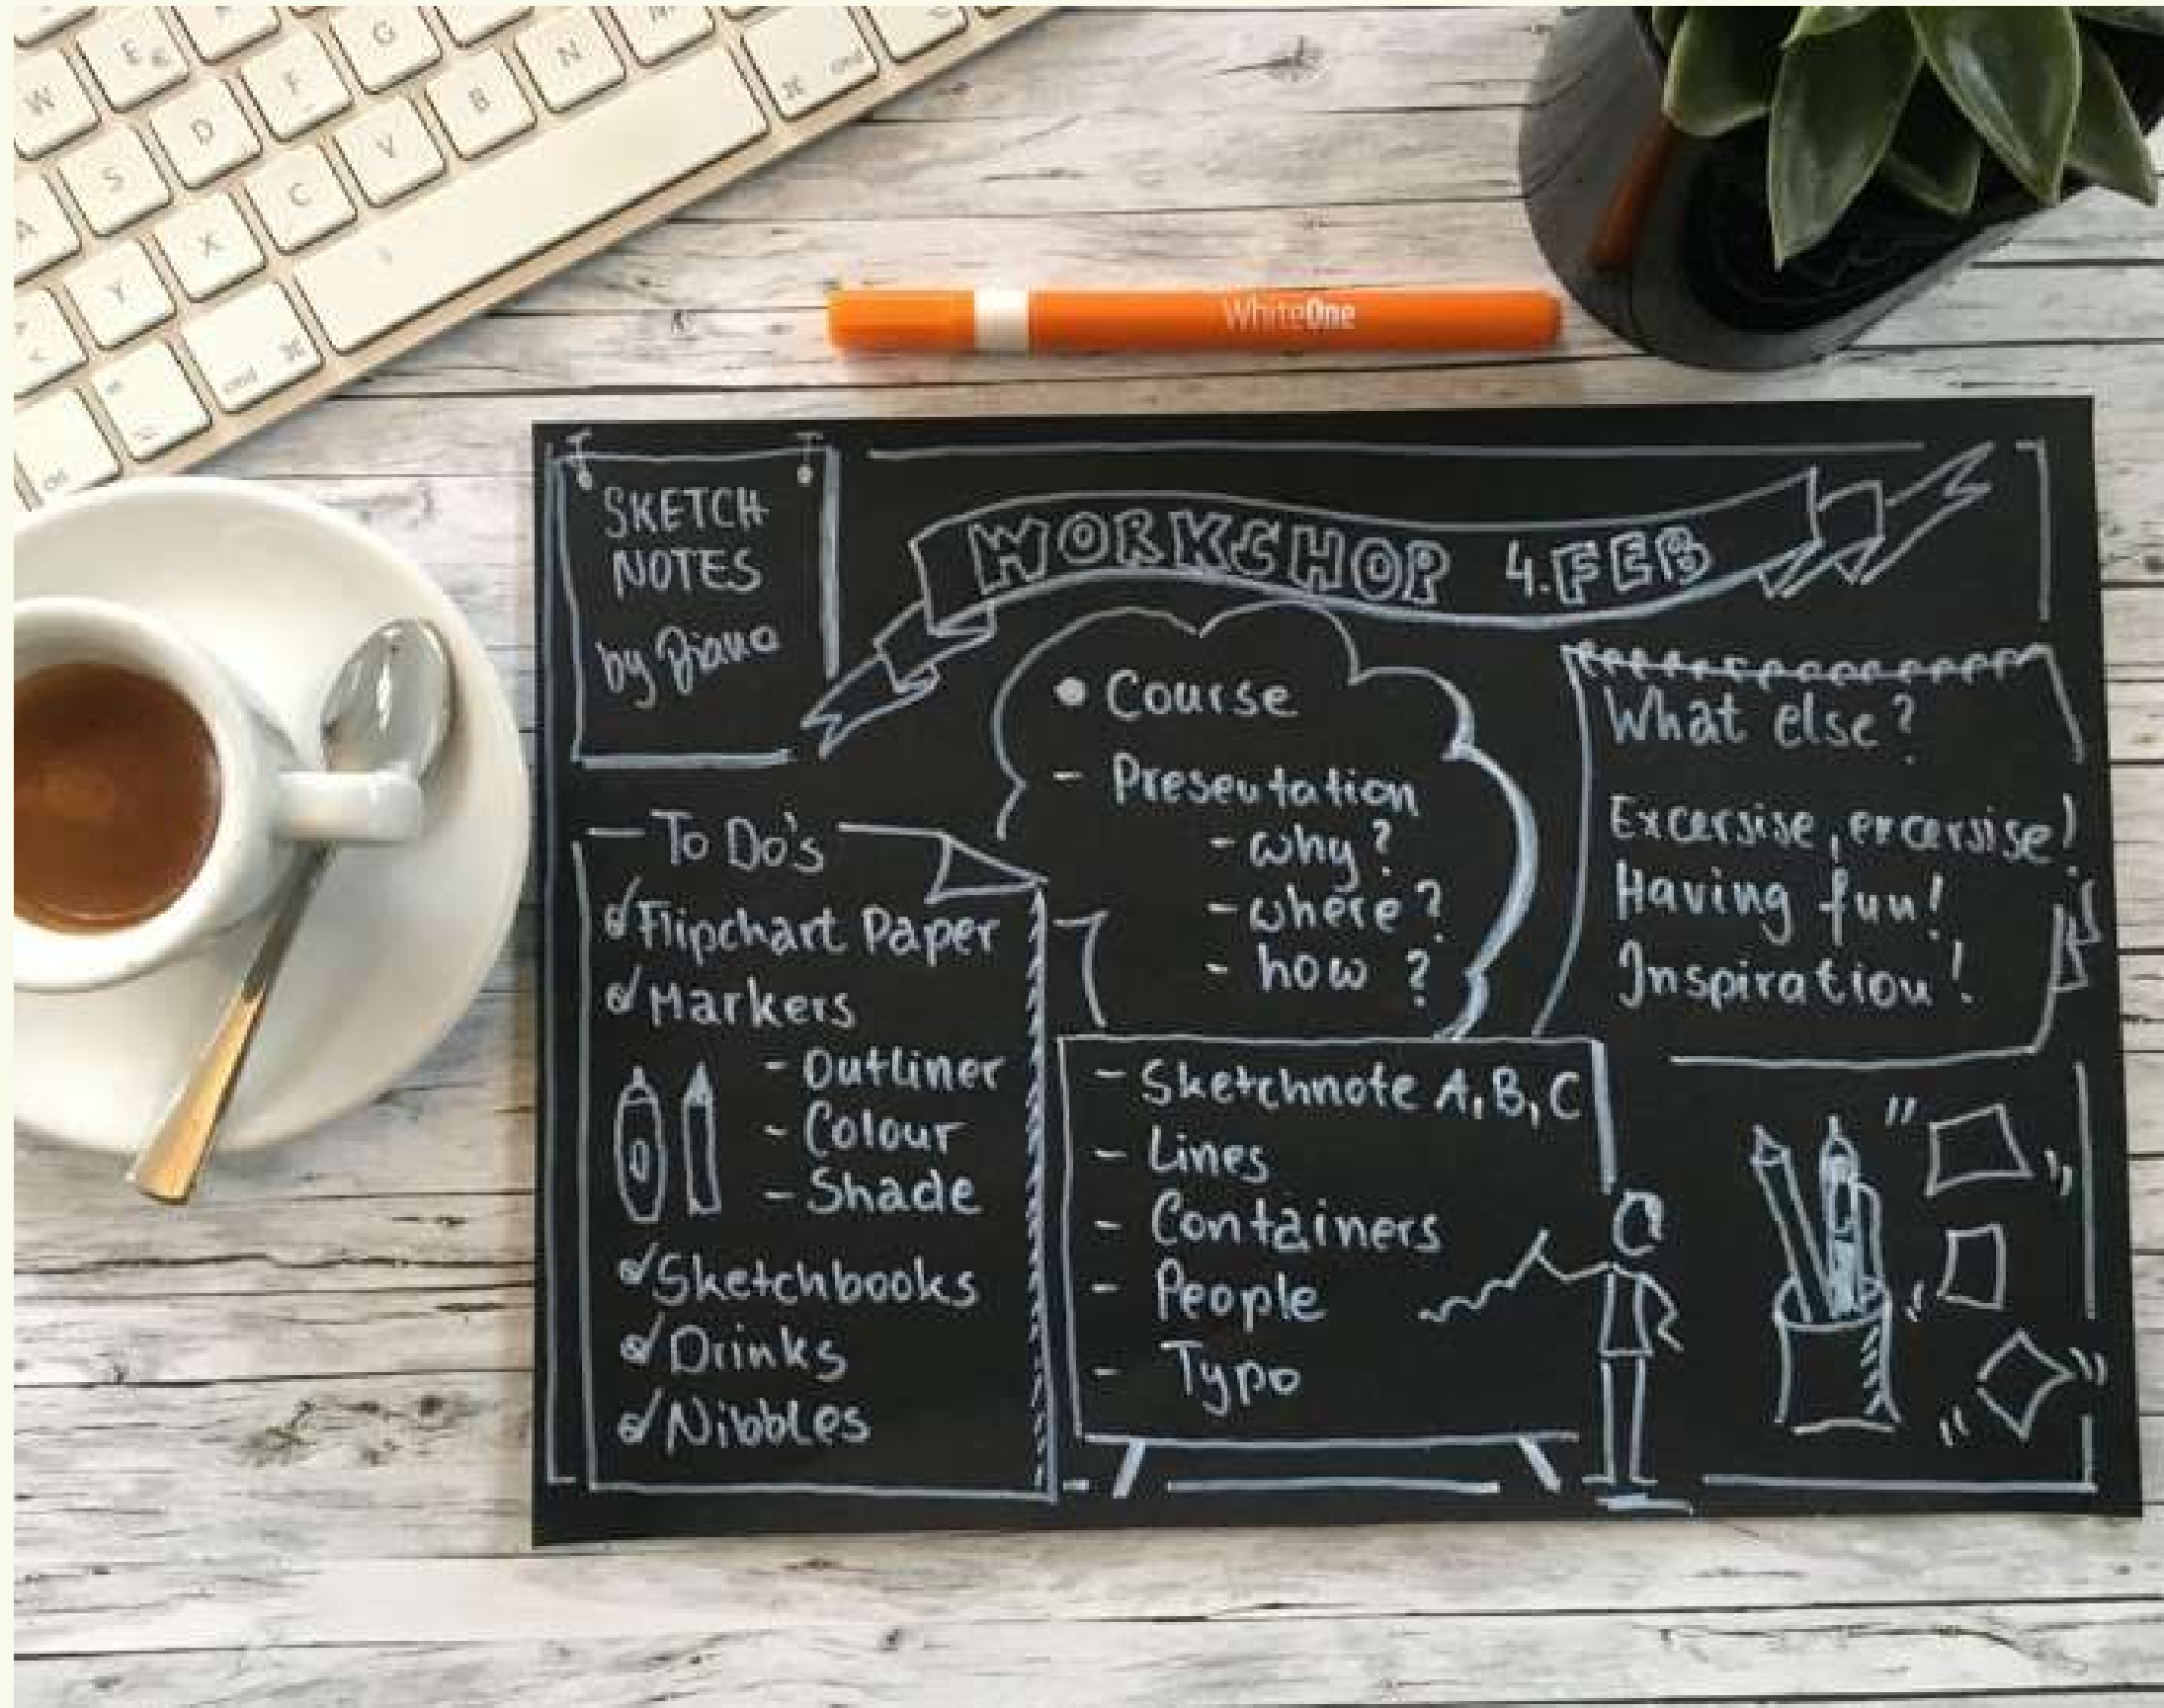 W E € G N M
A S D F V B cmd ⌘
Y X C
< cmd ⌘
WhiteOne
SKETCH
NOTES
by Diana
WORKSHOP 4. FEB
• Course
- Presentation
- why?
- where?
- how?
What else?
Excersise, excersise!
Having fun!
Inspiration!
To Do's
Flipchart Paper
Markers
- Outliner
- Colour
- Shade
Sketchbooks
Drinks
Nibbles
- Sketchnote A, B, C
- Lines
- Containers
- People
- Typo